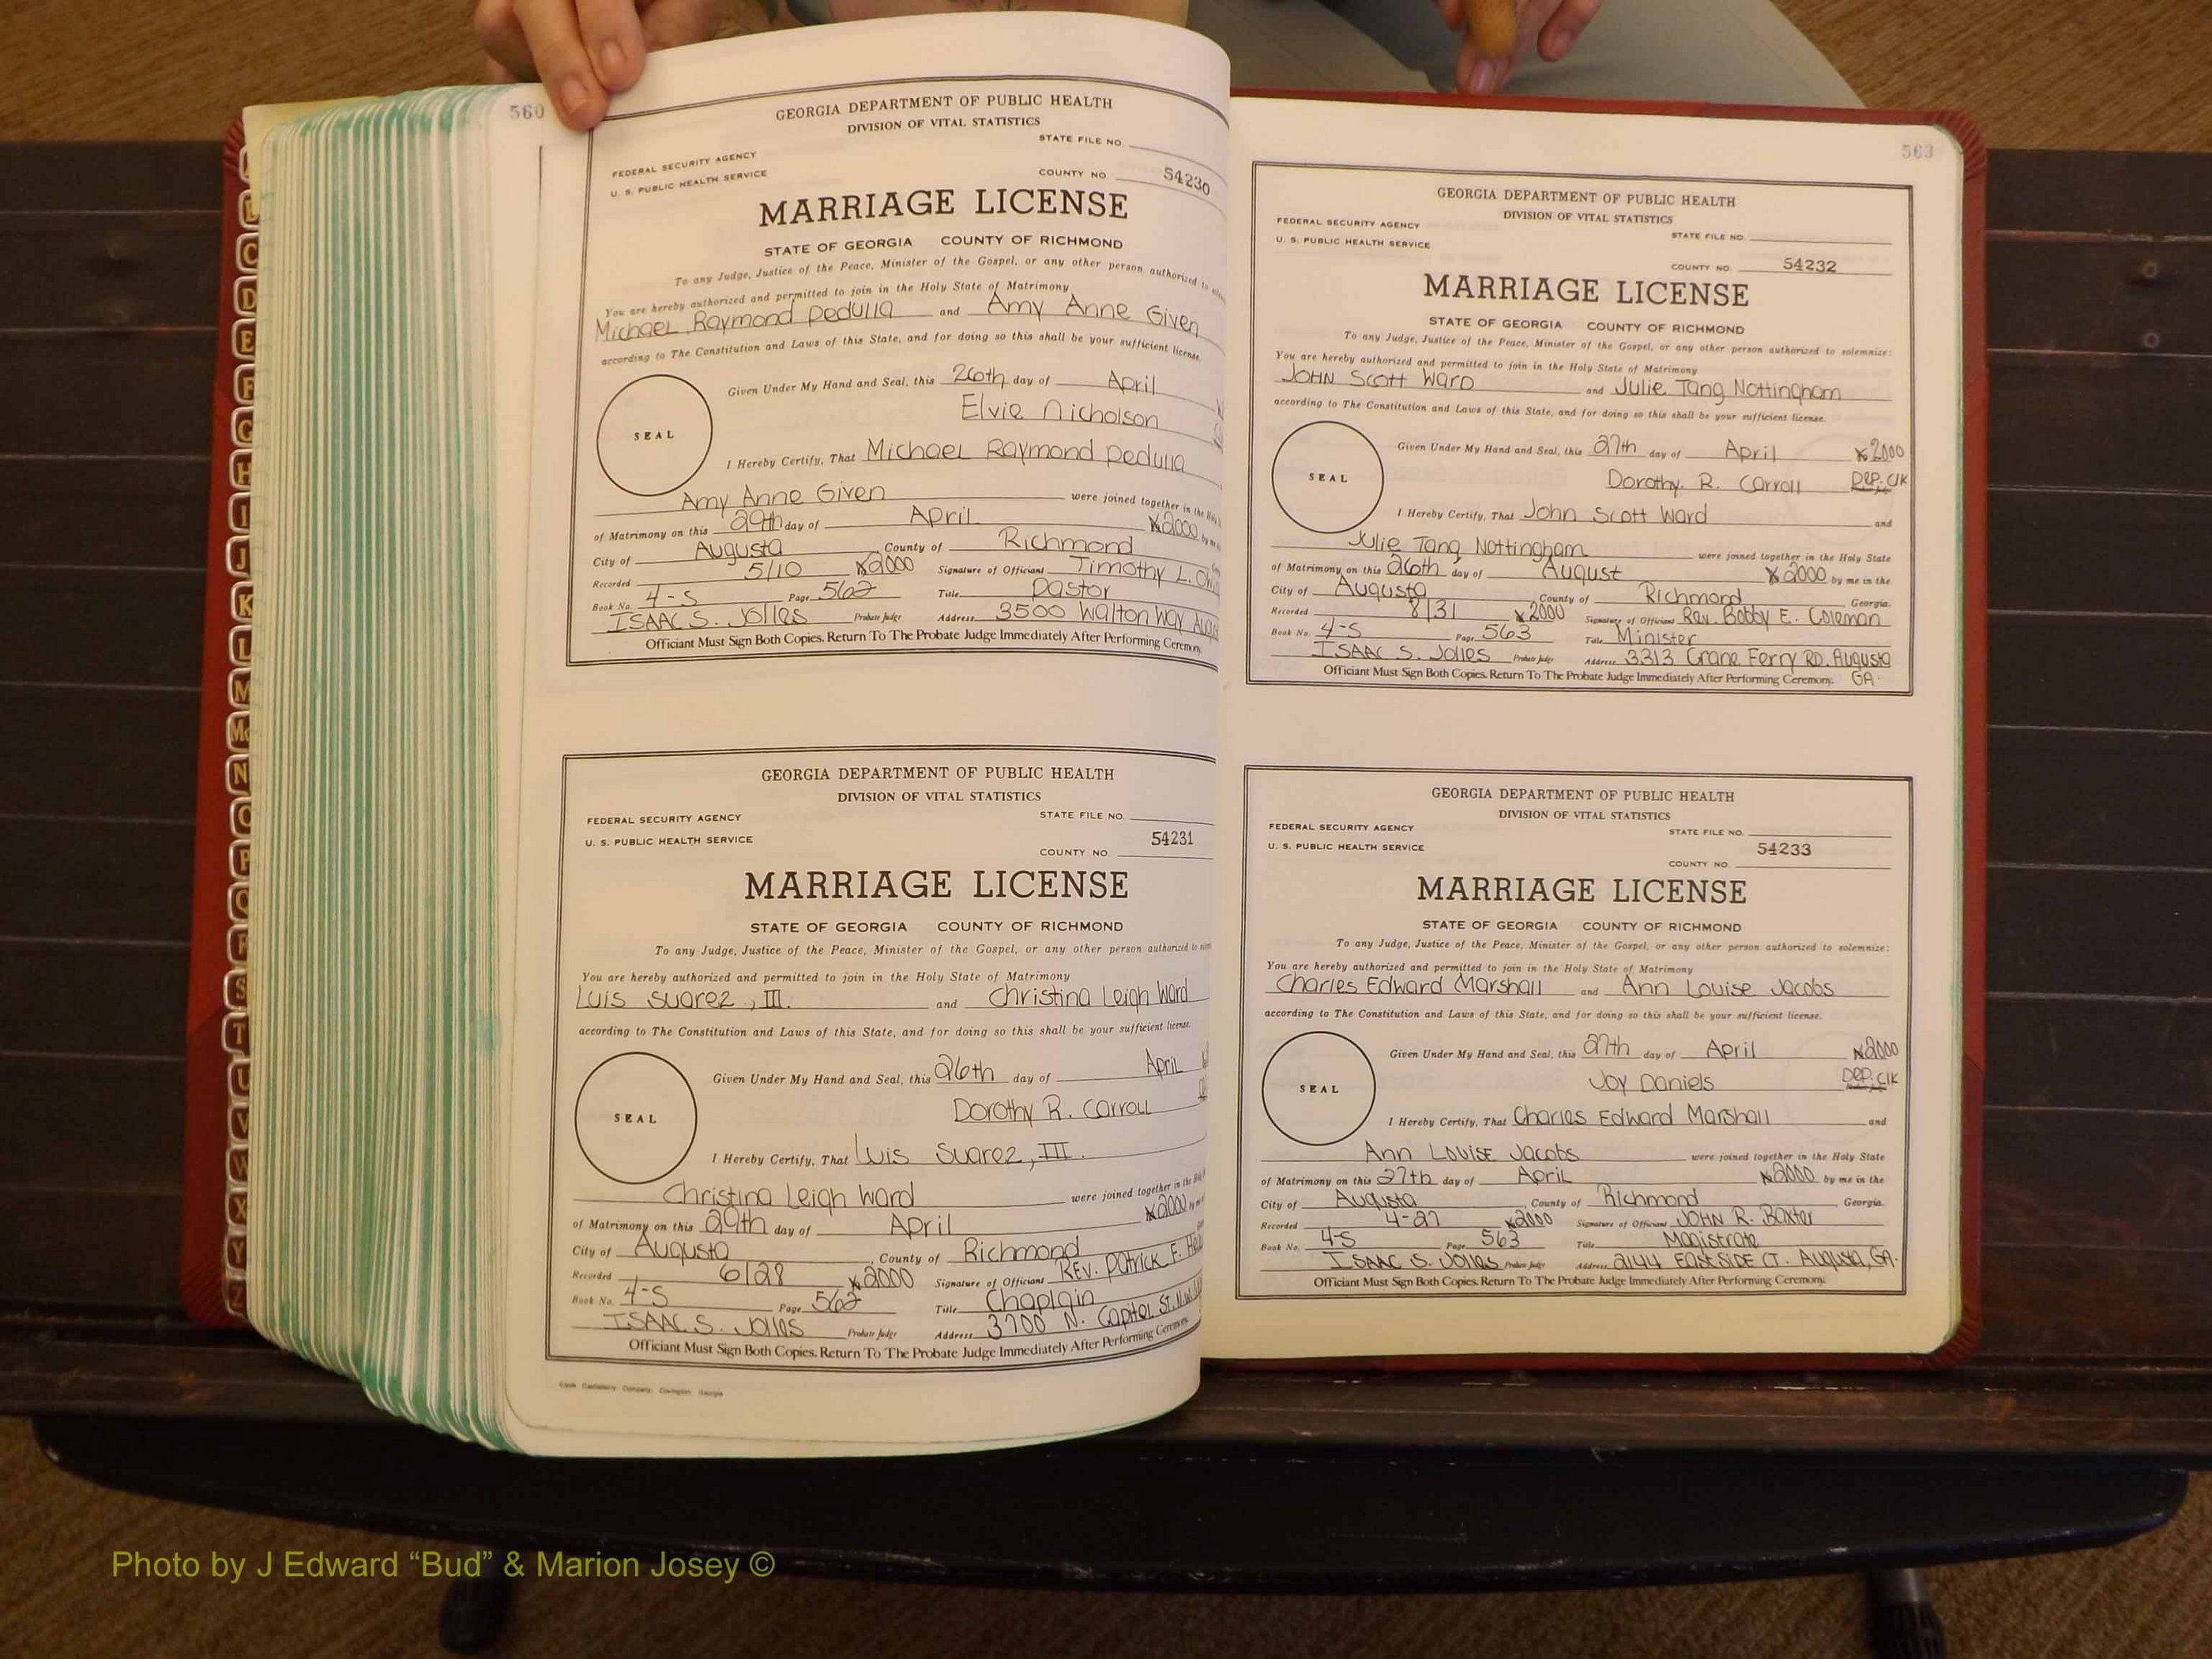 560
GEORGIA DEPARTMENT OF PUBLIC HEALTH
DIVISION OF VITAL STATISTICS
STATE FILE NO.
FEDERAL SECURITY AGENCY
U. S. PUBLIC HEALTH SERVICE
COUNTY NO. 54230
MARRIAGE LICENSE
STATE OF GEORGIA COUNTY OF RICHMOND
To any Judge, Justice of the Peace, Minister of the Gospel, or any other person authorized to
You are hereby authorized and permitted to join in the Holy State of Matrimony
Michael Raymond Pedulla and Amy Anne Given
according to The Constitution and Laws of this State, and for doing so this shall be your sufficient license.
Given Under My Hand and Seal, this 26th day of April
Elvie Nicholson
SEAL
I Hereby Certify, That Michael Raymond Pedulla
Amy Anne Given were joined together in the
of Matrimony on this 29th day of April 2000 by me
City of Augusta, County of Richmond
Recorded 5/10 2000 Signature of Officiant Timothy L.
Book No. 4-S Page 562 Title Pastor
ISAAC S. Jolles Probate Judge Address 3500 Walton Way
Officiant Must Sign Both Copies. Return To The Probate Judge Immediately After Performing Ceremony.
GEORGIA DEPARTMENT OF PUBLIC HEALTH
DIVISION OF VITAL STATISTICS
STATE FILE NO.
FEDERAL SECURITY AGENCY
U. S. PUBLIC HEALTH SERVICE
54231
COUNTY NO.
MARRIAGE LICENSE
STATE OF GEORGIA COUNTY OF RICHMOND
To any Judge, Justice of the Peace, Minister of the Gospel, or any other person authorized to
You are hereby authorized and permitted to join in the Holy State of Matrimony
Luis Suarez, III. and Christina Leigh Ward
according to The Constitution and Laws of this State, and for doing so this shall be your sufficient license.
Given Under My Hand and Seal, this 26th day of April
Dorothy R. Carroll
SEAL
I Hereby Certify, That Luis Suarez, III.
Christina Leigh Ward were joined together in the
of Matrimony on this 29th day of April 2000 by me
City of Augusta, County of Richmond
Recorded 6/28 2000 Signature of Officiant REv. Patrick F.
Book No. 4-S Page 562 Title Chaplain
ISAAC S. Jolles Probate Judge Address 3700 N. Capitol St. N.W.
Officiant Must Sign Both Copies. Return To The Probate Judge Immediately After Performing Ceremony.
563
GEORGIA DEPARTMENT OF PUBLIC HEALTH
DIVISION OF VITAL STATISTICS
FEDERAL SECURITY AGENCY
STATE FILE NO.
U. S. PUBLIC HEALTH SERVICE
COUNTY NO. 54232
MARRIAGE LICENSE
STATE OF GEORGIA COUNTY OF RICHMOND
To any Judge, Justice of the Peace, Minister of the Gospel, or any other person authorized to solemnize:
You are hereby authorized and permitted to join in the Holy State of Matrimony
JOHN Scott Ward and Julie Tang Nottingham
according to The Constitution and Laws of this State, and for doing so this shall be your sufficient license.
Given Under My Hand and Seal, this 27th day of April 2000
Dorothy. R. Carroll Dep. Clk
SEAL
I Hereby Certify, That John Scott Ward and
Julie Tang Nottingham were joined together in the Holy State
of Matrimony on this 26th day of August 2000 by me in the
City of Augusta, County of Richmond Georgia.
Recorded 8/31 2000 Signature of Officiant Rev. Bobby E. Coleman
Book No. 4-S Page 563 Title Minister
ISAAC S. Jolles Probate Judge Address 3313 Crane Ferry RD. Augusta
Officiant Must Sign Both Copies. Return To The Probate Judge Immediately After Performing Ceremony. GA.
GEORGIA DEPARTMENT OF PUBLIC HEALTH
DIVISION OF VITAL STATISTICS
FEDERAL SECURITY AGENCY
STATE FILE NO.
U. S. PUBLIC HEALTH SERVICE
54233
COUNTY NO.
MARRIAGE LICENSE
STATE OF GEORGIA COUNTY OF RICHMOND
To any Judge, Justice of the Peace, Minister of the Gospel, or any other person authorized to solemnize:
You are hereby authorized and permitted to join in the Holy State of Matrimony
Charles Edward Marshall and Ann Louise Jacobs
according to The Constitution and Laws of this State, and for doing so this shall be your sufficient license.
Given Under My Hand and Seal, this 27th day of April 2000
Joy Daniels Dep. Clk
SEAL
I Hereby Certify, That Charles Edward Marshall and
Ann Louise Jacobs were joined together in the Holy State
of Matrimony on this 27th day of April 2000 by me in the
City of Augusta, County of Richmond Georgia.
Recorded 4-27 2000 Signature of Officiant JOHN R. Baxter
Book No. 4-S Page 563 Title Magistrate
ISAAC S. Jolles Probate Judge Address 2144 EastSIDE CT. Augusta, GA.
Officiant Must Sign Both Copies. Return To The Probate Judge Immediately After Performing Ceremony.
C
D
E
F
G
H
I
J
K
L
M
Mc
N
O
P
Q
R
S
T
U
V
W
X
Y
Z
Photo by J Edward “Bud” & Marion Josey ©